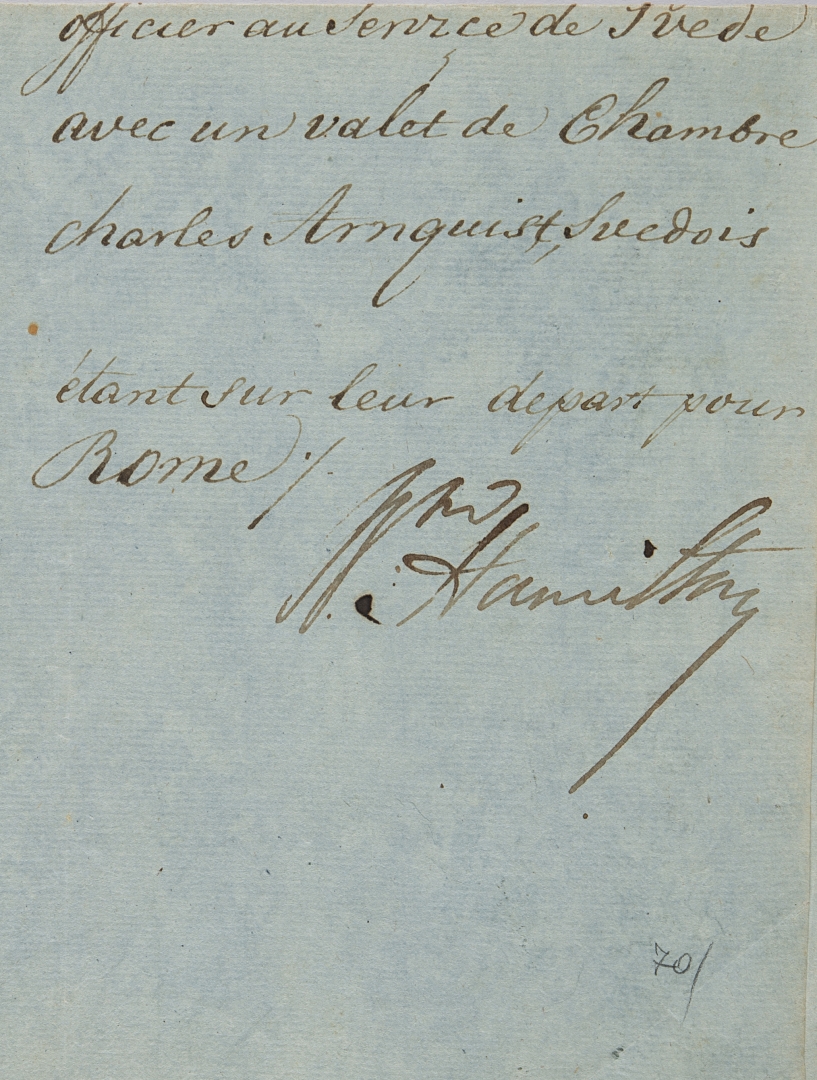 officier au Service de Svede
avec un valet de Chambre
charles Arnquist, Svedois
étant sur leur depart pour
Rome ./
Wm. Hamilton
70/